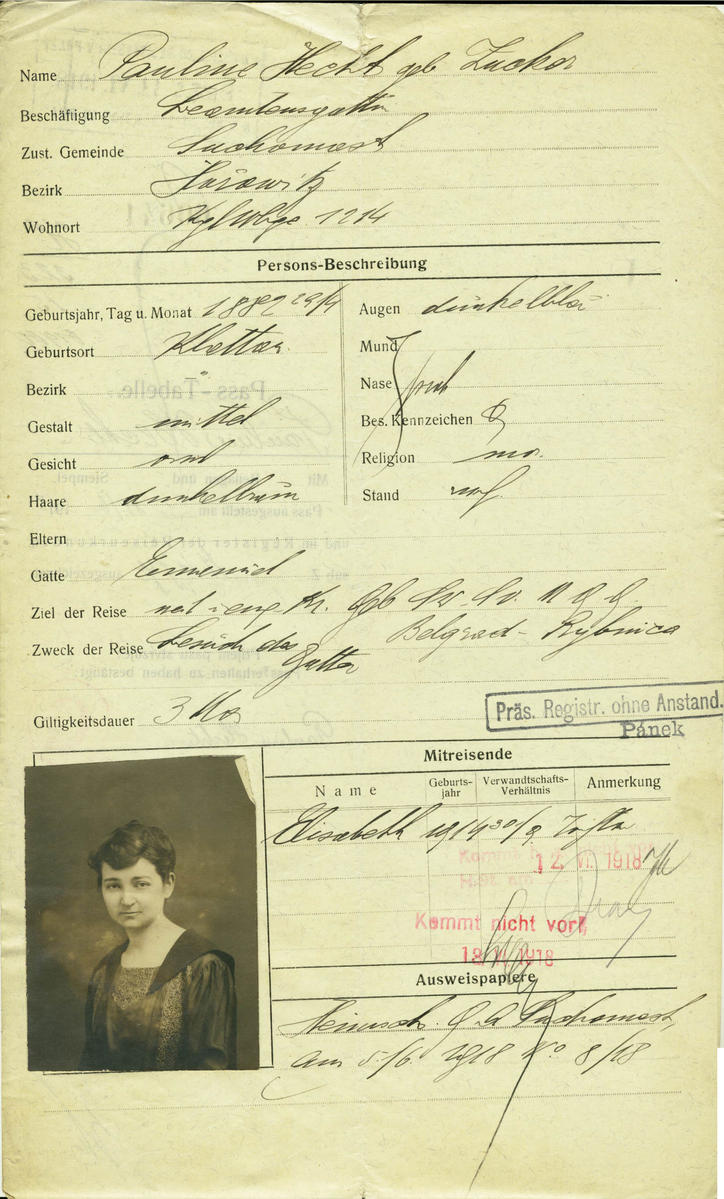 Name Pauline Hecht geb Zucker
Beschäftigung Beamtensgattin
Zust. Gemeinde Suchomast
Bezirk Hořowitz
Wohnort Kgl Wbge 1214
Persons-Beschreibung
Geburtsjahr, Tag u. Monat 1882 29/4
Geburtsort Klattau
Bezirk "
Gestalt mittel
Gesicht oval
Haare dunkelbraun
Augen dunkelblau
Mund
Nase prop
Bes. Kennzeichen
Religion mos.
Stand verh
Eltern
Gatte Emanuel
Ziel der Reise
Zweck der Reise Besuch des Gatten Belgrad - Rybnica
Giltigkeitsdauer 3 Mo
Präs. Registr. ohne Anstand.
Pánek
Mitreisende
Name Geburts-jahr Verwandtschafts-Verhältnis Anmerkung
Elisabeth 1914 30/9 Tochter
12. VI. 1918
Kommt nicht vor!
18. VI. 1918
Ausweispapiere
Heimsch. Suchomast
am 5./6. 1918 No 8/18
Pass-Tabelle.